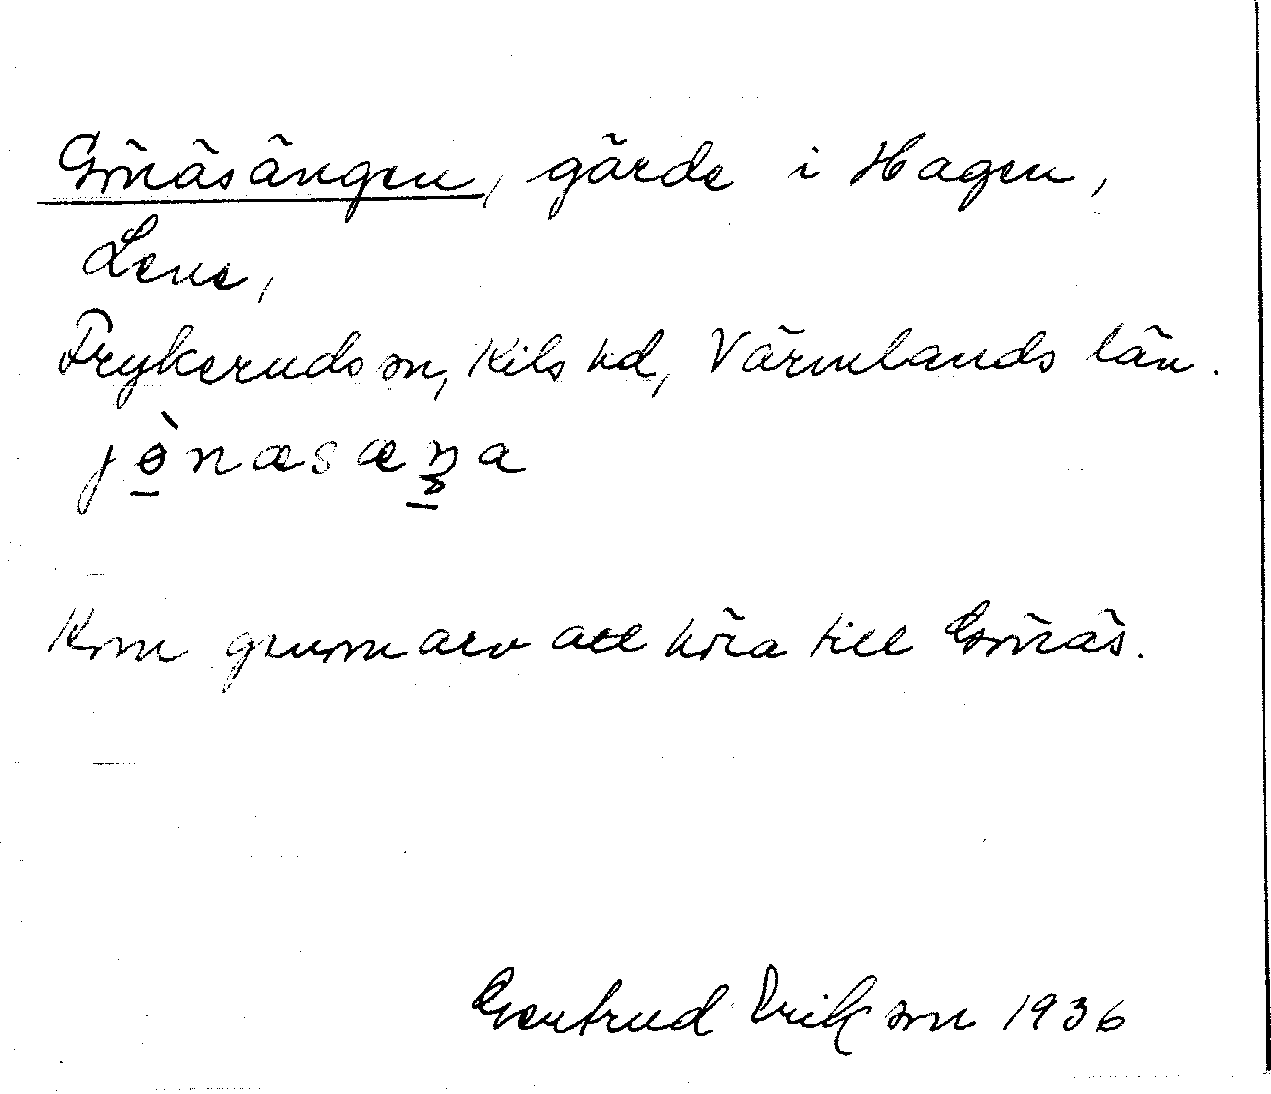 Gönäsängen, gärde i Hagen,
Lene,
Frykeruds sn, Kils hd, Värmlands län.
jònæsæŋa
Kom genom arv att höra till Gönäs.
Gertrud Erikson 1936